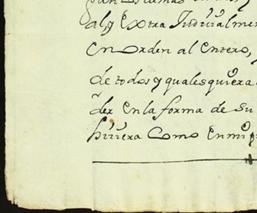 alg Extra Judicialme
en orden al entero,
de todos y qualesquiera
der en la forma de su
como en mi